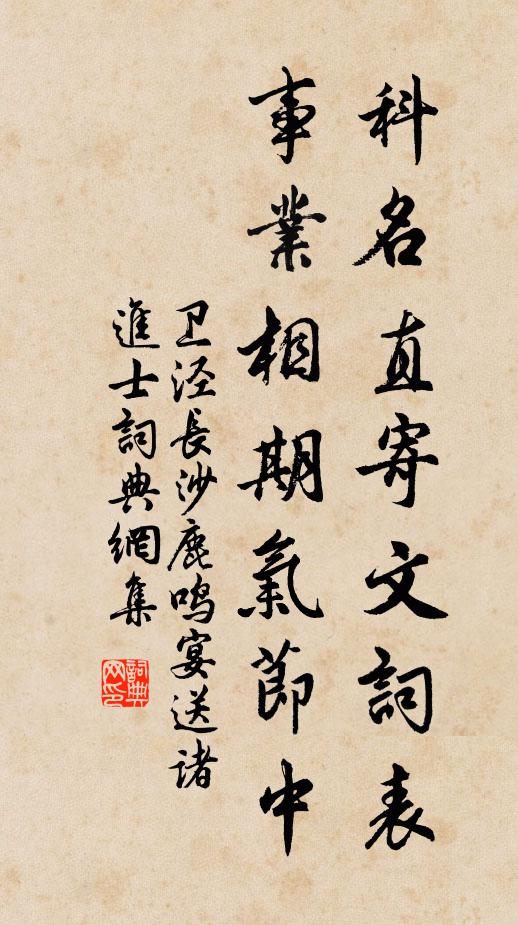 科名直寄文詞表
事業相期氣節中
卫泾長沙鹿鸣宴送诸
進士詞典網集
詞典网印